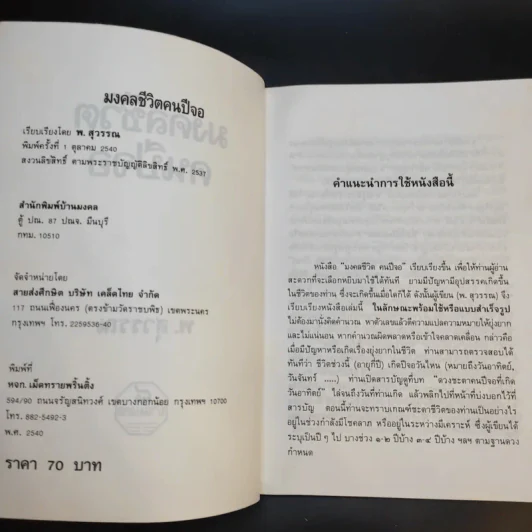 มงคลชีวิตคนปีจอ
เรียบเรียงโดย พ. สุวรรณ
พิมพ์ครั้งที่ 1 ตุลาคม 2540
สงวนลิขสิทธิ์ ตามพระราชบัญญัติลิขสิทธิ์ พ.ศ. 2537
สำนักพิมพ์บ้านมงคล
ตู้ ปณ. 87 ปณจ. มีนบุรี
กทม. 10510
จัดจำหน่ายโดย
สายส่งศึกษิต บริษัท เคล็ดไทย จำกัด
117 ถนนเฟื่องนคร (ตรงข้ามวัดราชบพิธ) เขตพระนคร
กรุงเทพฯ โทร. 2259536-40
พิมพ์ที่
หจก. เม็ดทรายพริ้นติ้ง
594/90 ถนนจรัญสนิทวงศ์ เขตบางกอกน้อย กรุงเทพฯ 10700
โทร. 882-5492-3
พ.ศ. 2540
ราคา 70 บาท
คำแนะนำการใช้หนังสือนี้
หนังสือ "มงคลชีวิต คนปีจอ" เรียบเรียงขึ้น เพื่อให้ท่านผู้อ่าน
สะดวกที่จะเลือกหยิบมาใช้ได้ทันที ยามมีปัญหามีอุปสรรคเกิดขึ้น
ในชีวิตของท่าน ซึ่งจะเกิดขึ้นเมื่อใดก็ได้ ดังนั้นผู้เขียน (พ. สุวรรณ) จึง-
เรียบเรียงหนังสือเล่มนี้ ในลักษณะพร้อมใช้หรือแบบสำเร็จรูป
ไม่ต้องมานั่งคิดคำนวณ หาตัวเลขแล้วตีความแปลความหมายให้ยุ่งยาก
และไม่แน่นอน หากคำนวณผิดพลาดหรือเข้าใจคลาดเคลื่อน กล่าวคือ
เมื่อมีปัญหาหรือเกิดเรื่องยุ่งยากในชีวิต ท่านสามารถตรวจสอบได้
ทันทีว่า ชีวิตช่วงนี้ (อายุกี่ปี) เกิดปีจอวันไหน (หมายถึงวันอาทิตย์,
วันจันทร์ .....) ท่านเปิดสารบัญดูที่บท "ดวงชะตาคนปีจอที่เกิด
วันอาทิตย์" ไล่จนถึงวันที่ท่านเกิด แล้วพลิกไปที่หน้าที่บ่งบอกไว้ที่
สารบัญ ตอนนี้ท่านจะทราบเกณฑ์ชะตาชีวิตของท่านเป็นอย่างไร
อยู่ในช่วงกำลังมีโชคลาภ หรืออยู่ในระหว่างมีเคราะห์ ซึ่งผู้เขียนได้
ระบุเป็นปี ๆ ไป บางช่วง ๑-๒ ปีบ้าง ๓-๔ ปีบ้าง ฯลฯ ตามฐานดวง
กำหนด